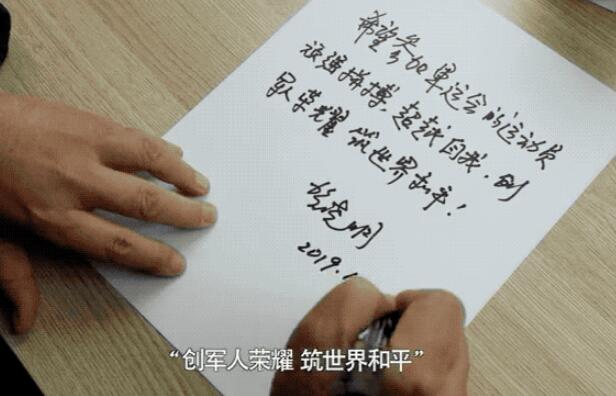 希望参加军运会的运动员
顽强拼搏,超越自我,创
军人荣耀 筑世界和平!
2019.1
“创军人荣耀 筑世界和平”